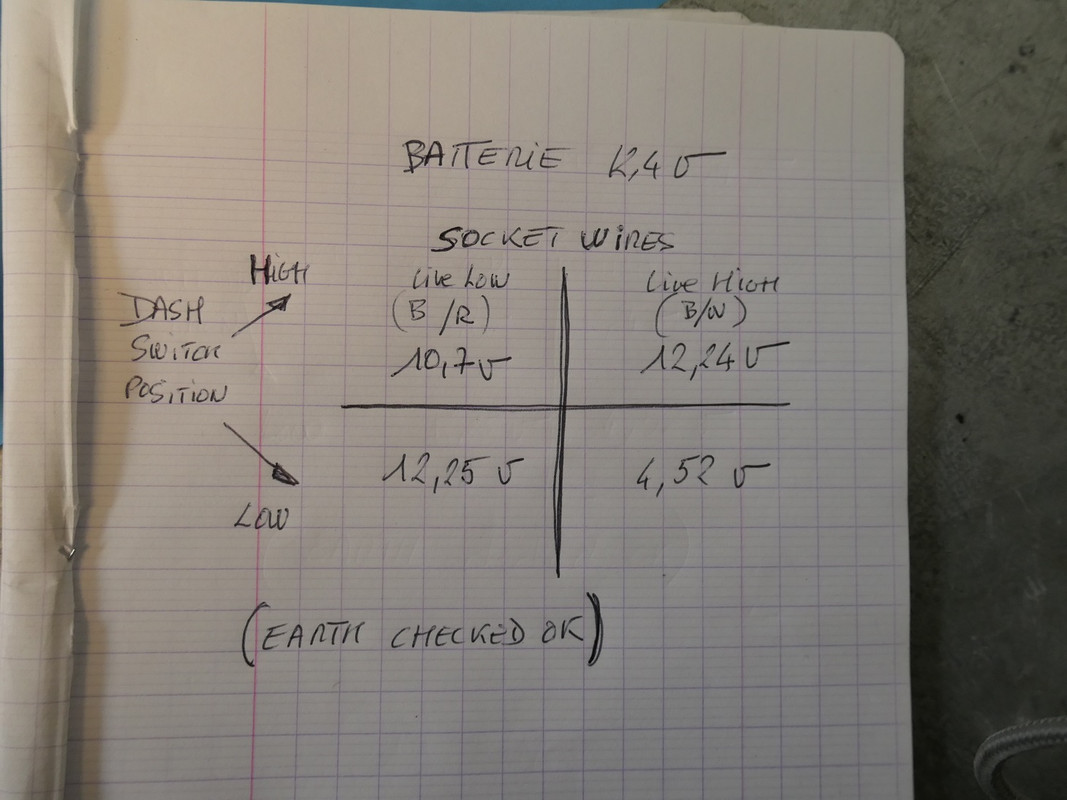 BATTERIE 12,4 V
SOCKET WIRES
HIGH
Live Low
Live HIGH
DASH
(B/R)
(B/W)
SWITCH
10,7 V
12,24 V
POSITION
12,25 V
4,52 V
LOW
(EARTH CHECKED OK)